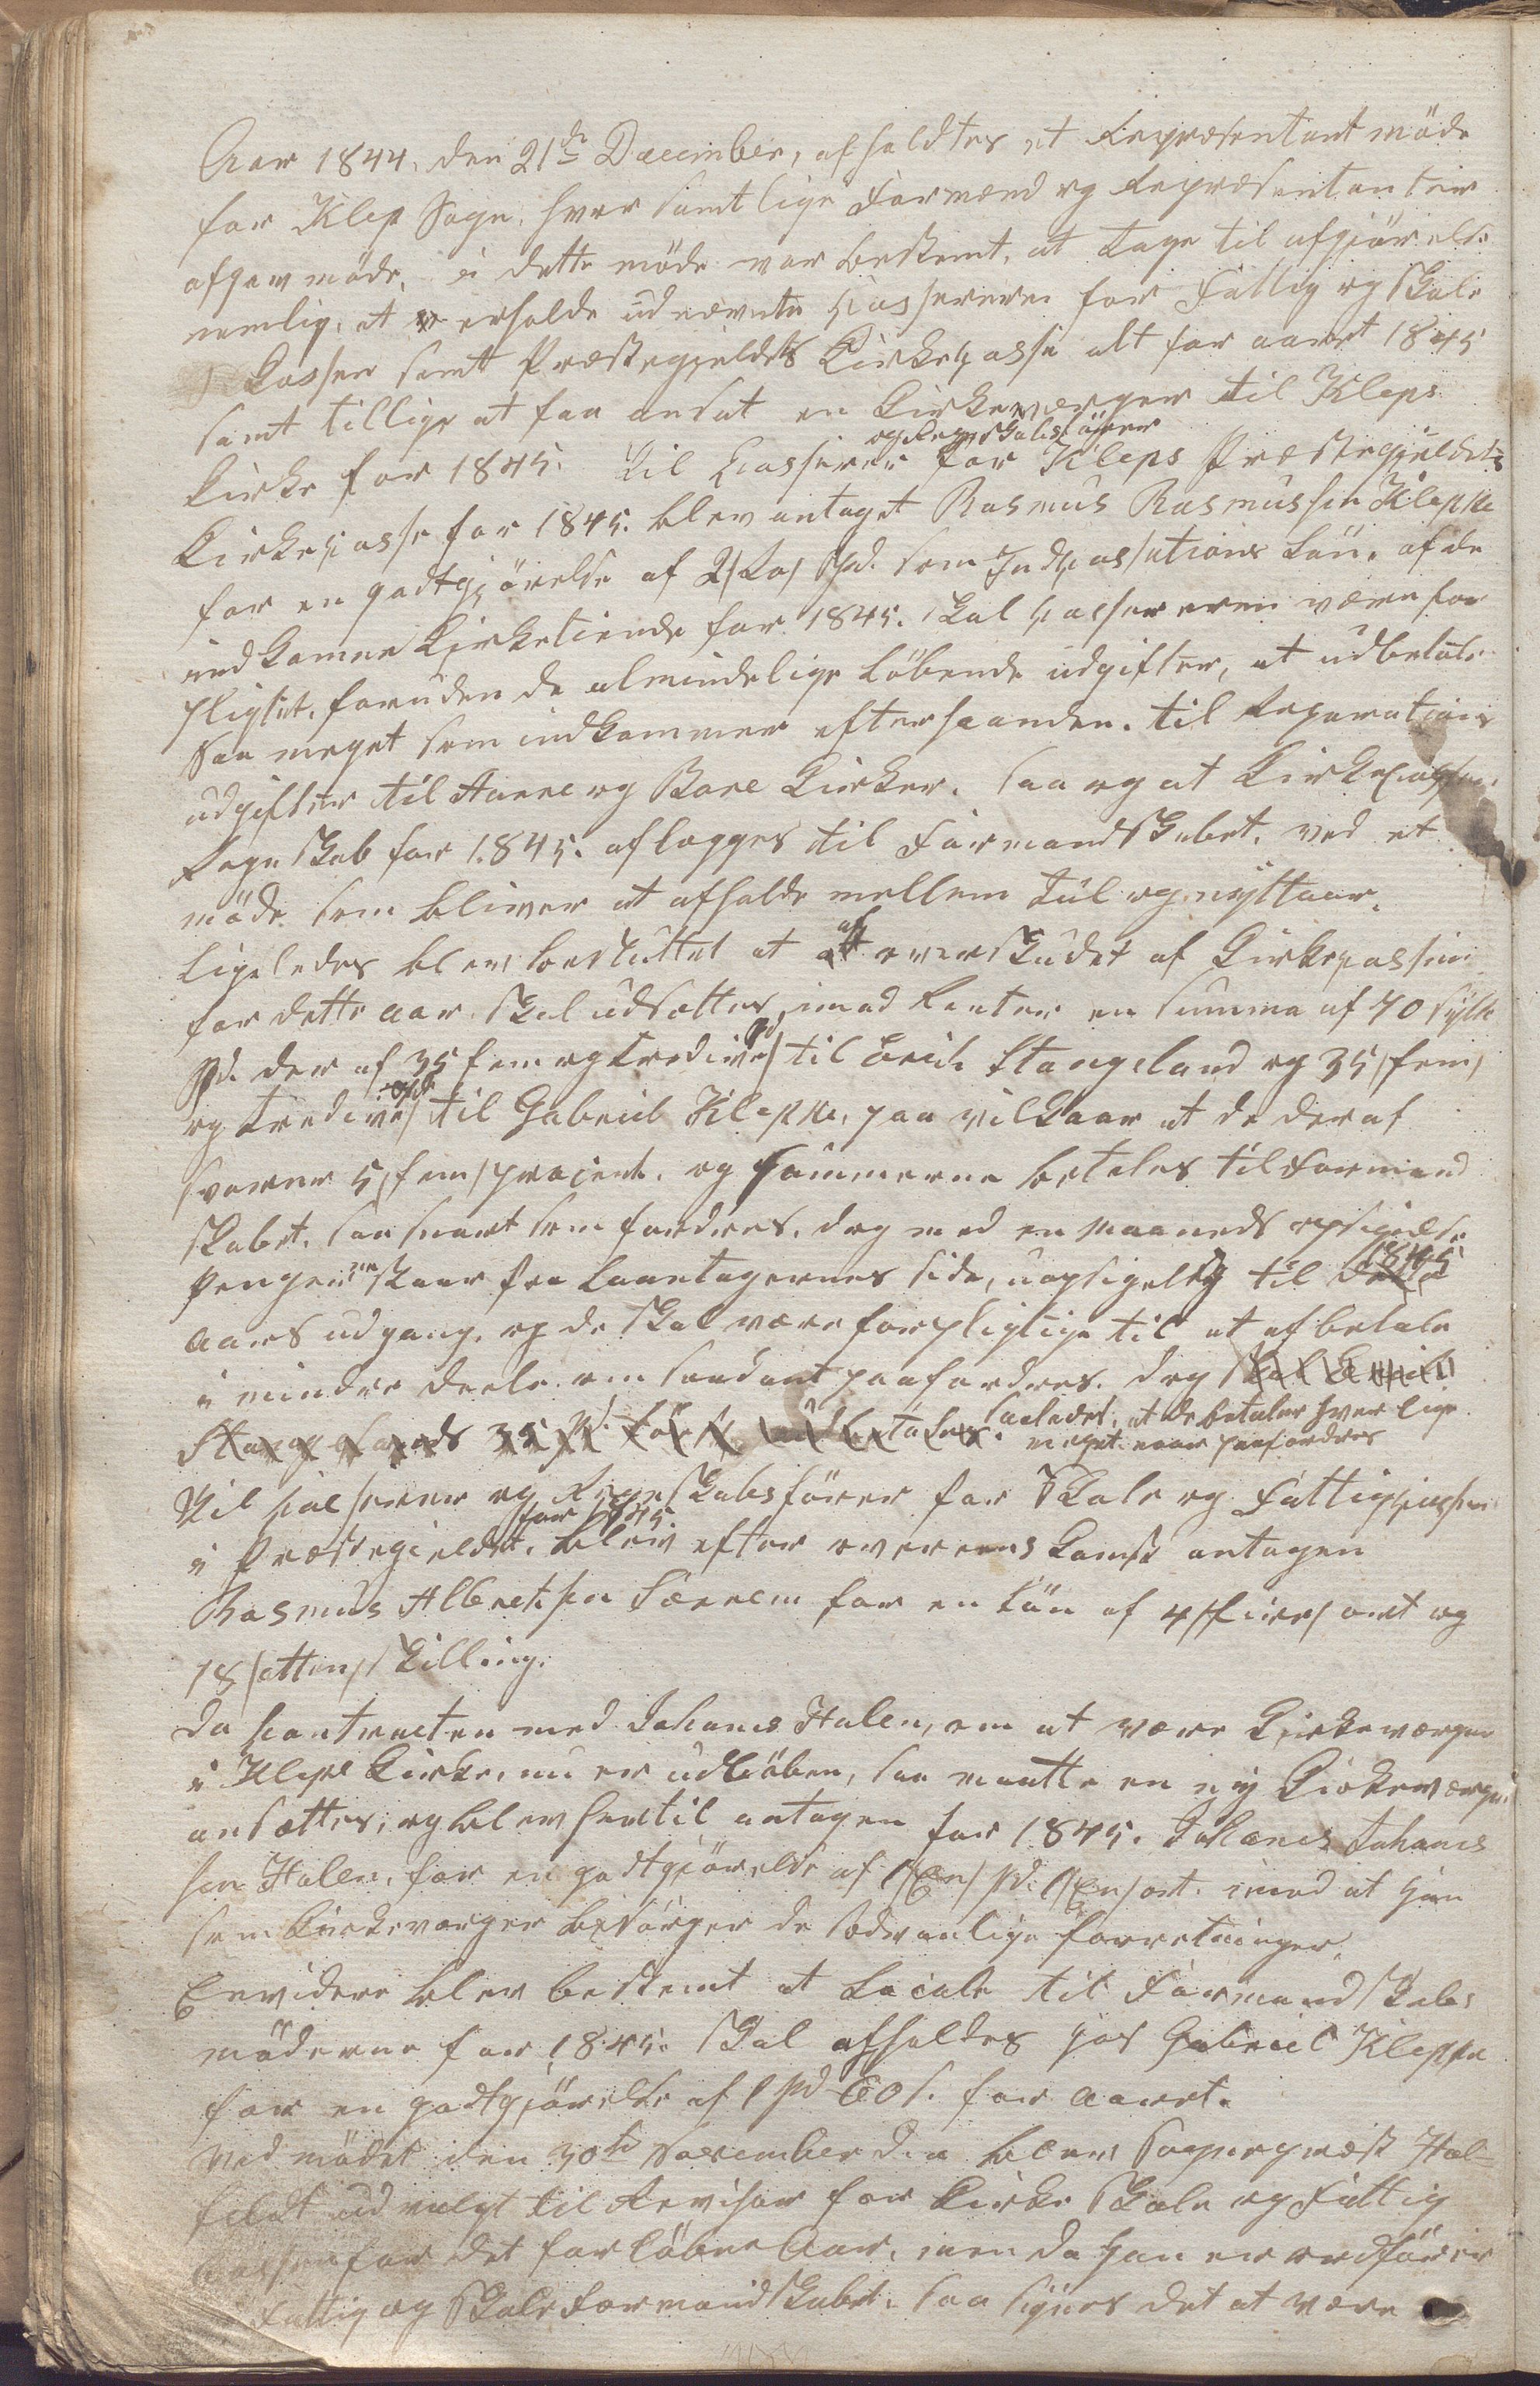 Aar 1844, den 21de December, afholdtes et Repræsentant möde
for Klep Sogn, hvor samtlige Formænd og Repræsentanter
afgav möde, i dette möde var bestemt, at tage til afgjörelse
nemlig, at erholde udnævnte Kassereren for Fattig og Skole
Kassen samt Præstegjeldets Kirkekasse alt for aaret 1845
samt tillige at faa ansat en Kirkeværger til Kleps
Kirke for 1845. Til Casserer og Regnskabsfører for Kleps Præstegjeldets
Kirkekasse for 1845. blev antaget Rasmus Rasmussen Kleppe
for en godtgjörelse af 2/to/ Spd. som Indkassations Løn. af de
indkomne Kirketiende for 1845. skal Kassereren være for
pligtet, foruden de almindelige löbende udgifter, at udbetale
saa meget som indkommer efterhaanden. til Reparations
udgifter til Haare og Bore Kirker. saa og at Kirkekassens
Regnskab for 1845. aflægges til Formandskabet, ved et
möde som bliver at afholde mellem Jul og nyttaar.
Ligeledes blev besluttet at af overskudet af Kirkekassen
for dette aar skal udsættes, imod Renter en summa af 70 sytti
Spd. der af 35 fem og tredive/ Spd til Eric Stangeland og 35 /fem
og tredive/ Spd til Gabriel Kleppe, paa vilkaar at de deraf
svarer 5 /fem/ procent. og summerne betales til Formand
skabet, saa snart som fordres. dog med en Maaneds opsigelse
Pengene staar fra laantagernes side, uopsigelig til 1845
Aars udgang, og de skal være forpligtige til at afbetale
i mindre deele om saadant paafordres. dog skal Eric
Stangelands 35 Spd. först udbetales. saaledes, at de betaler hver lige
meget naar paafordres
Til Kasserer og Regnskabsfører for Skole og Fattigkassen
i Præstegjeldet, for 1845 blev efter overeenskomst antagen
Rasmus Albretsen Særeim for en Lön af 4 /fire/ ort og
18 /atten/ skilling.
Da Contracten med Johanes Halen, om at være Kirkeværger
i Kleps Kirke, nu er udlöben, saa maatte en ny Kirkeværger
ansættes, og blev hertil antagen for 1845. Johanes Johanes
sen Halen, for en godtgjörelse af 1/En/ Spd. 1/En/ ort. imod at han
som Kirkeværger besörger de sædvanlige forretninger.
Envidere blev bestemt at Locale til Formandskabs
möderne for 1845. skal afholdes hos Gabriel Kleppe
for en godtgjörelse af 1 Spd 60 s. for aaret.
Ved mödet den 30te November d. a. blev Sogneprest Hal-
feldt udvalgt til Revisor for Kirke Skole og Fattig
Kassen for det forløbne Aar, men da han er ordfører
Fattig og Skole Formandskabet, saa synes det at være